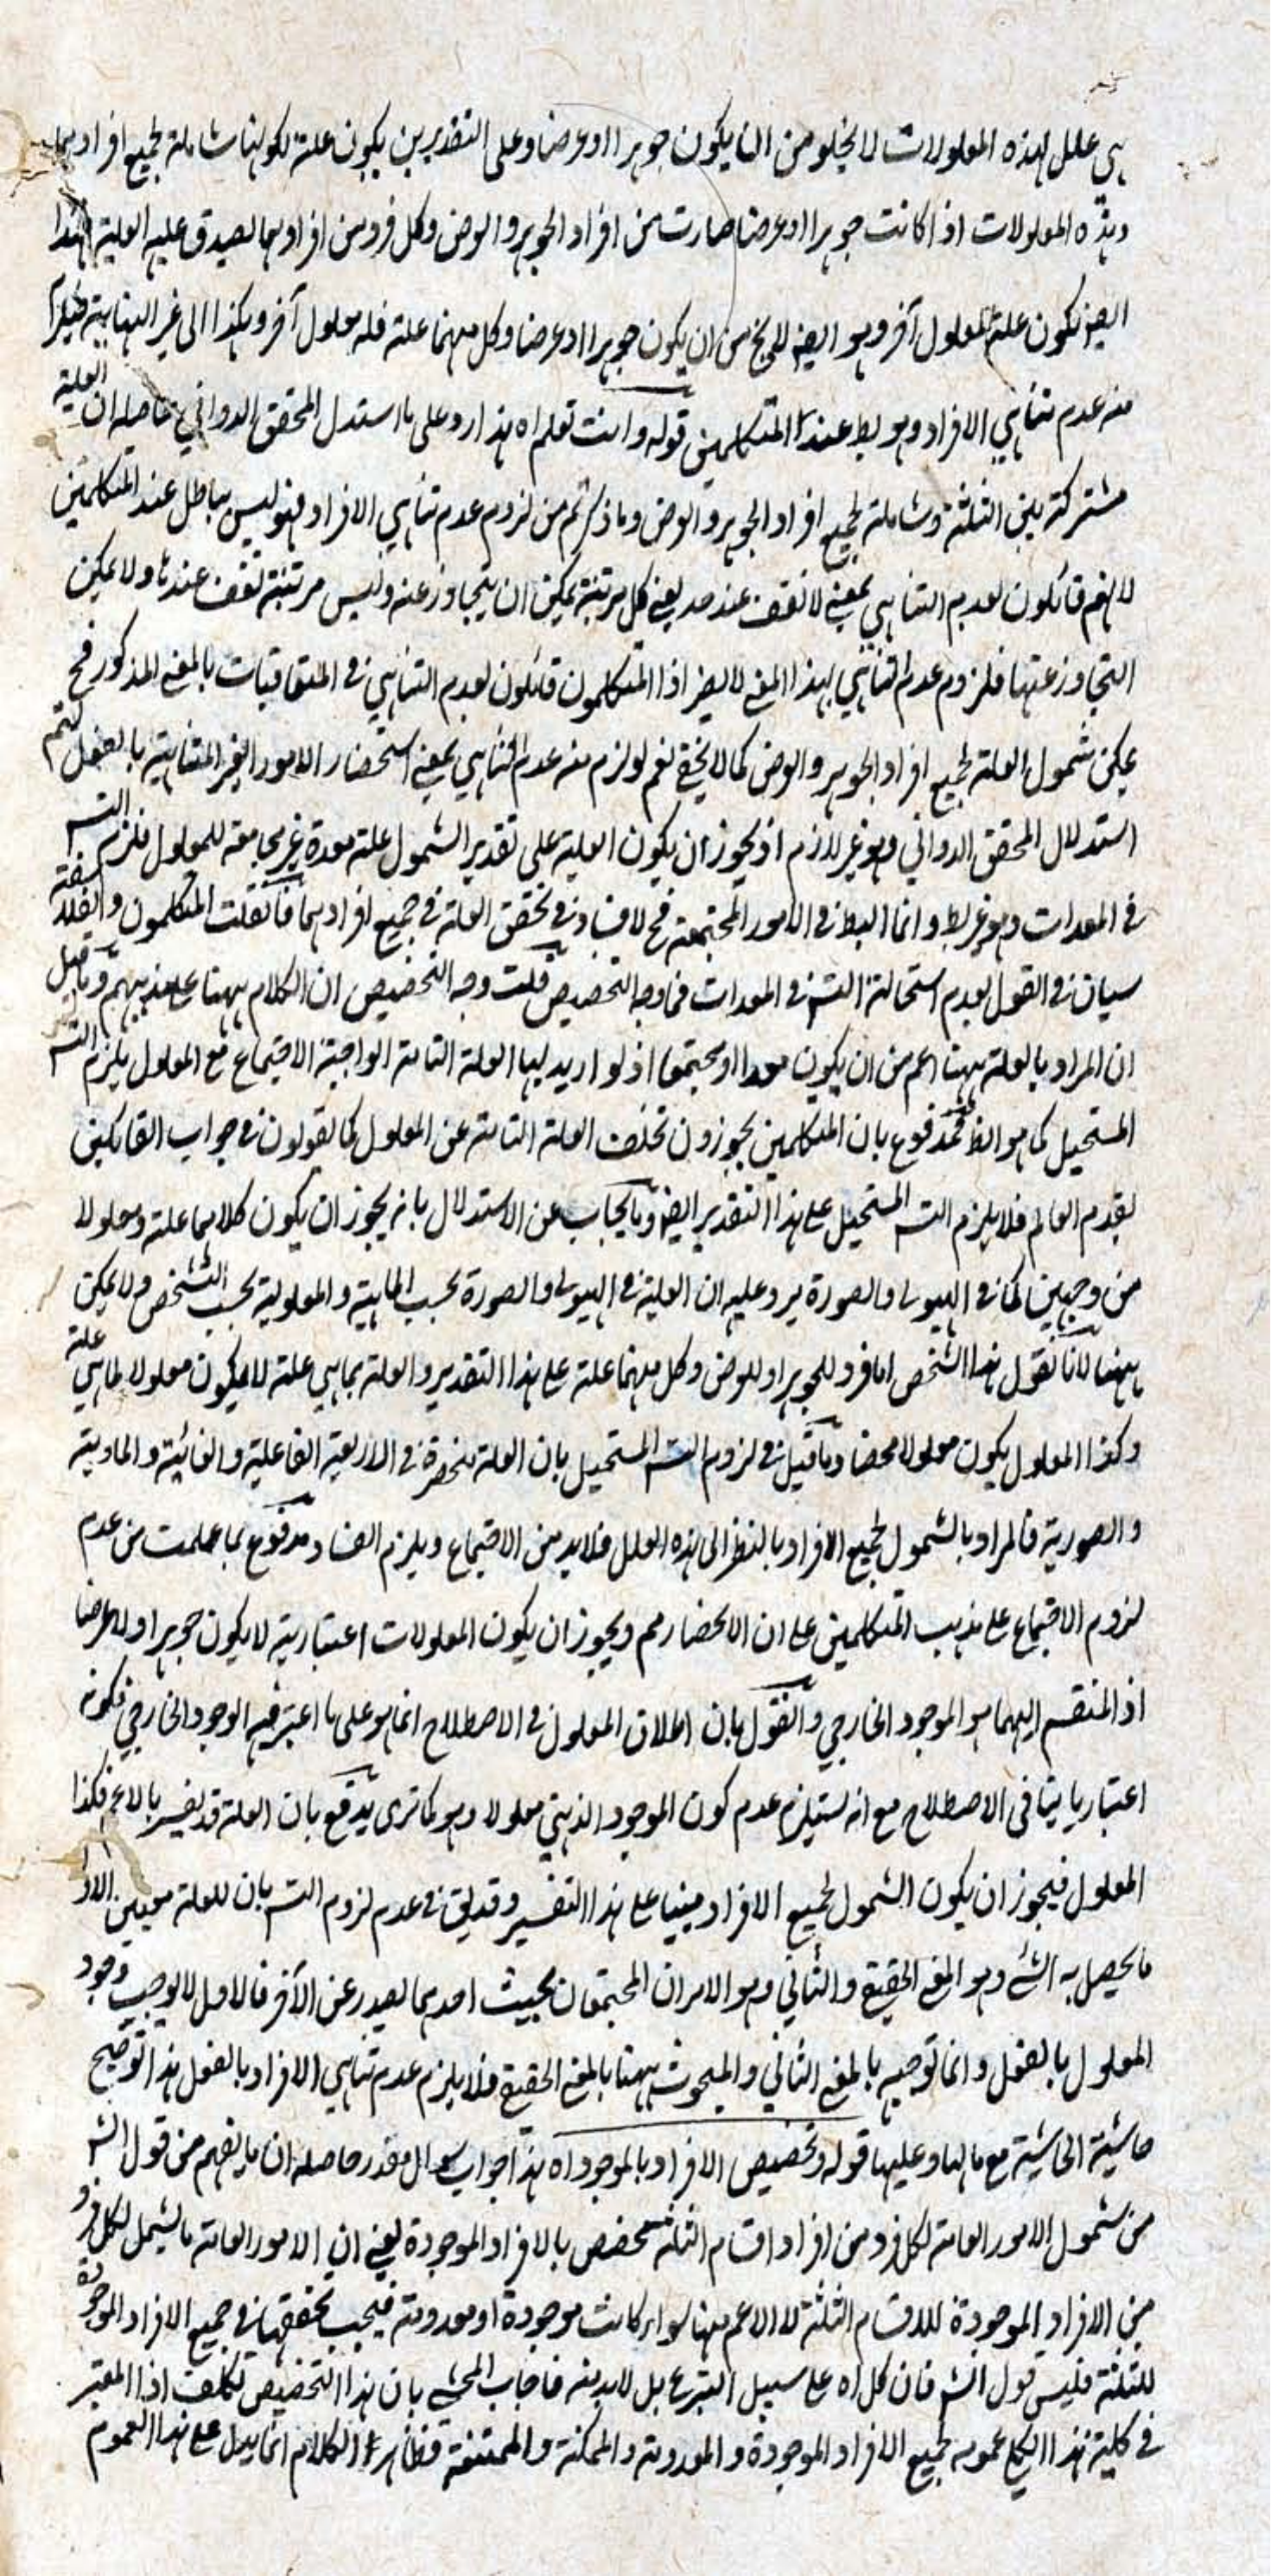 هي علل لهذه المعلولات لا يخلو من ان يكون جوهرا او عرضا وعلى التقديرين يكون علة لكونها شاملة لجميع افرادهما
وهذه المعلولات اذا كانت جوهرا او عرضا صارت من افراد الجوهر والعرض وكل فرد من افرادهما يصدق عليه العلية فهذا
ايضا يكون علة لمعلول آخر وهو ايضا لا يخ من ان يكون جوهرا او عرضا وكل منهما علة فله معلول آخر وهكذا الى غير النهاية فيلزم
منه عدم تناهي الافراد وهو بط عند المتكلمين قوله وانت تعلم اه هذا رد على ما استدل المحقق الدواني حاصله ان العلية
مشتركة بين الثلثة وشاملة لجميع افراد الجوهر والعرض وما ذكرتم من لزوم عدم تناهي الافراد فهو ليس بباطل عند المتكلمين
لانهم قائلون بعدم التناهي بمعنى لا تقف عند حد يعني كل مرتبة يمكن ان يتجاوز عنه وليس مرتبة تقف عندها ولا يمكن
التجاوز عنها فلزوم عدم التناهي بهذا المعنى لا يضر اذا المتكلمون قائلون بعدم التناهي في المتعاقبات بالمعنى المذكور فح
يمكن شمول العلة لجميع افراد الجوهر والعرض كما لا يخفى نعم لو لزم منه عدم التناهي بمعنى استحضار الامور الغير المتناهية بالفعل لتم
استدلال المحقق الدواني وهو غير لازم اذ يجوز ان يكون العلية على تقدير الشمول علة معدة غير مجامعة للمعلول فلزم التسـ
في المعدات وهو غير بط وانما البط في الامور المجتمعة فح لا فساد في تحقق العلة في جميع افرادهما فان قلت المتكلمون والفلاسفة
سيان في القول بعدم استحالة التسـ في المعدات فما وجه التخصيص قلت وجه التخصيص ان الكلام ههنا على مذهبهم وما قيل
ان المراد بالعلة ههنا اعم من ان يكون معدا او مجتمعا اذ لو اريد بها العلة التامة الواجبة الاجتماع مع المعلول يلزم التسـ
المستحيل كما هو الظ فمدفوع بان المتكلمين يجوزون تخلف العلة التامة عن المعلول كما يقولون في جواب القائلين
بقدم العالم فلا يلزم التسـ المستحيل على هذا التقدير ايضا وما يجاب عن الاستدلال بانه يجوز ان يكون كلاهما علة ومعلولا
من وجهين كما في الهيولى والصورة يرد عليه ان العلية في الهيولى والصورة بحسب الماهية والمعلولية بحسب التشخص ولا يمكن
ههنا لانا نقول هذا الشخص اما فرد للجوهر او للعرض وكل منهما علة على هذا التقدير والعلة بما هي علة لا يكون معلولا لما هي علة
وكذا المعلول يكون معلولا محضا وما قيل في لزوم التسـ المستحيل بان العلة منحصرة في الاربعة الفاعلية والغائية والمادية
والصورية فالمراد بالشمول لجميع الافراد بالنظر الى هذه العلل فلا بد من الاجتماع ويلزم الفساد مدفوع بما علمت من عدم
لزوم الاجتماع على مذهب المتكلمين على ان الانحصار مم ويجوز ان يكون المعلولات اعتبارية لا يكون جوهرا ولا عرضا
اذ المنقسم اليهما هو الموجود الخارجي والقول بان اطلاق المعلول في الاصطلاح انما هو على ما اعتبر فيه الوجود الخارجي فكونه
اعتباريا ينافي الاصطلاح مع انه يستلزم عدم كون الموجود الذهني معلولا وهو كما ترى يدفع بان العلة قد يفسر بالاعم فكذا
المعلول فيجوز ان يكون الشمول لجميع الافراد مبنيا على هذا التفسير وقد يق في عدم لزوم التسـ بان للعلة معنيين الاول
ما يحصل به الشئ وهو المعنى الحقيقي والثاني وهو الامران المجتمعان بحيث احدهما يصدر عن الآخر فالاول لا يوجب وجود
المعلول بالفعل وانما توجبه بالمعنى الثاني والمبحوث ههنا بالمعنى الحقيقي فلا يلزم عدم تناهي الافراد بالفعل هذا توضيح
حاشية الحاشية مع مالها وعليها قوله وتخصيص الافراد بالموجود اه هذا جواب سوال مقدر حاصله ان ما يفهم من قول الشـ
من شمول الامور العامة لكل فرد من افراد اقسام الثلثة مخصص بالافراد الموجودة يعني ان الامور العامة ما يشمل لكل فرد
من الافراد الموجودة للاقسام الثلثة لا الاعم منها سواء كانت موجودة او معدومة فيجب تحققها في جميع الافراد الموجودة
للثلثة فليس قول الشـ فان كل اه على سبيل التبرع بل لا بد منه فاجاب المحشي بان هذا التخصيص تكلف اذا المعتبر
في كلية هذا الحكم عمومه لجميع الافراد الموجودة والمعدومة والممكنة والممتنعة فظاهر الكلام انما يدل على هذا العموم